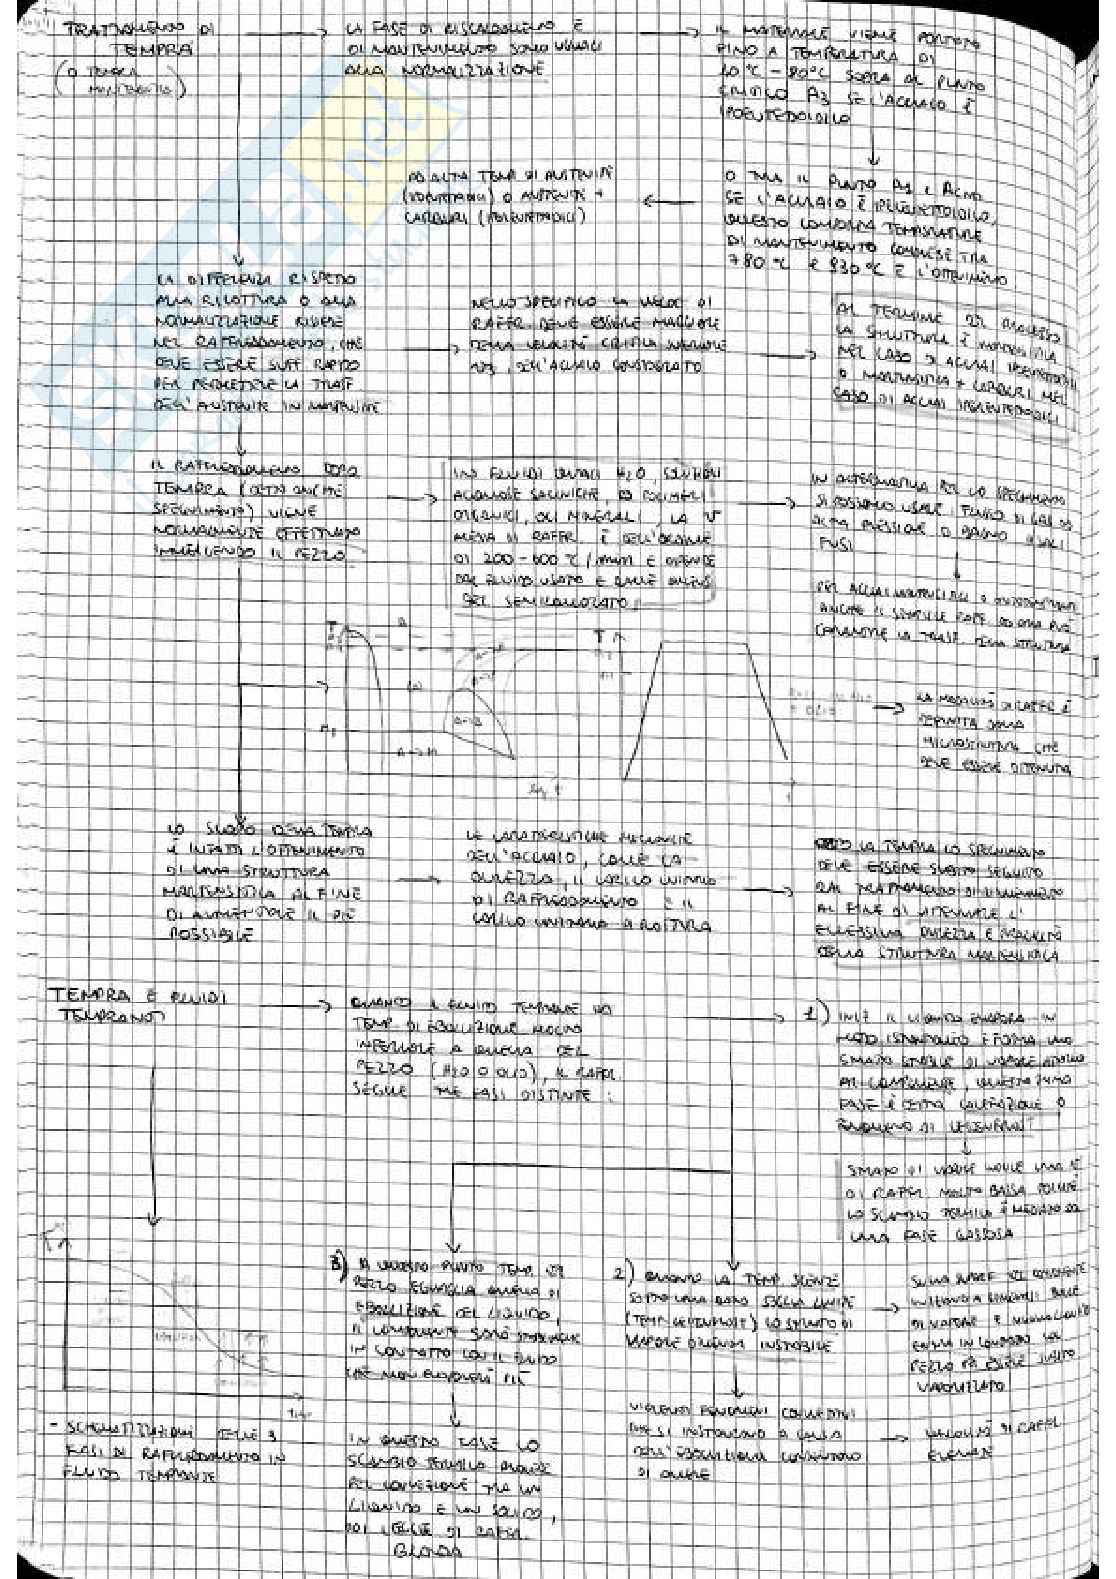 TRATTAMENTO DI
TEMPRA
(O TEMPRA
MARTENSITICA)
LA FASE DI RISCALDAMENTO E
DI MANTENIMENTO SONO UGUALI
ALLA NORMALIZZAZIONE
IL MATERIALE VIENE PORTATO
FINO A TEMPERATURA DI
°C - °C SOPRA AL PUNTO
CRITICO A3 SE L'ACCIAIO È
IPOEUTETTOIDICO
O TRA IL PUNTO A1 E ACM
SE L'ACCIAIO È IPEREUTETTOIDICO,
QUESTO COMPORTA TEMPERATURE
DI MANTENIMENTO COMPRESE TRA
780 °C E 930 °C E L'OTTENIMENTO
AD ALTA TEMP DI AUSTENITE
(IPOEUTETTOIDICI) O AUSTENITE +
CARBURI (IPEREUTETTOIDICI)
LA DIFFERENZA RISPETTO
ALLA RICOTTURA O ALLA
NORMALIZZAZIONE RISIEDE
NEL RAFFREDDAMENTO, CHE
DEVE ESSERE SUFF RAPIDO
PER PERMETTERE LA TRASF
DELL'AUSTENITE IN MARTENSITE
NELLO SPECIFICO LA VELOC DI
RAFFR. DEVE ESSERE MAGGIORE
DELLA VELOCITÀ CRITICA SUPERIORE
DELL'ACCIAIO CONSIDERATO
AL TERMINE DEL PROCESSO
LA STRUTTURA È MARTENSITICA
NEL CASO DI ACCIAI IPOEUTETTOIDICI
O MARTENSITICA + CARBURI NEL
CASO DI ACCIAI IPEREUTETTOIDICI
IL RAFFREDDAMENTO DOPO
TEMPRA (DETTO ANCHE
SPEGNIMENTO) VIENE
NORMALMENTE EFFETTUATO
IMMERGENDO IL PEZZO
IN FLUIDI QUALI H2O, SOLUZIONI
ACQUOSE SALINICHE, POLIMERI
ORGANICI, OLI MINERALI, LA V
MEDIA DI RAFFR. È DELL'ORDINE
DI 200-600 °C/min E DIPENDE
DAL FLUIDO USATO E DALLE DIMENS
DEL SEMILAVORATO
IN ALTERNATIVA PER LO SPEGNIMENTO
SI POSSONO USARE FLUSSI DI GAS AD
ALTA PRESSIONE O BAGNO DI SALI
FUSI
PER ACCIAI MARTENSITICI O AUTOTEMPRANTI
ANCHE IL SEMPLICE RAFF. AD ARIA PUÒ
GARANTIRE LA TRASF. DELLA STRUTTURA
T
A
A→M
T
LA MODALITÀ DI RAFFR È
DEFINITA DALLA
MICROSTRUTTURA CHE
DEVE ESSERE OTTENUTA
LO SCOPO DELLA TEMPRA
È INFATTI L'OTTENIMENTO
DI UNA STRUTTURA
MARTENSITICA AL FINE
DI AUMENTARE IL PIÙ
POSSIBILE
LE CARATTERISTICHE MECCANICHE
DELL'ACCIAIO, COME LA
DUREZZA, IL CARICO UNITARIO
DI RAFFREDDAMENTO E IL
CARICO UNITARIO A ROTTURA
DOPO LA TEMPRA LO SPEGNIMENTO
DEVE ESSERE SUBITO SEGUITO
DAL TRATTAMENTO DI RINVENIMENTO
AL FINE DI ATTENUARE L'
ECCESSIVA DUREZZA E FRAGILITÀ
DELLA STRUTTURA MARTENSITICA
TEMPRA E FLUIDI
TEMPRANTI
QUANDO IL FLUIDO TEMPRANTE HA
TEMP. DI EBOLLIZIONE MOLTO
INFERIORE A QUELLA DEL
PEZZO (H2O O OLIO), IL RAFFR.
SEGUE TRE FASI DISTINTE:
1) INIZ IL LIQUIDO EVAPORA IN
MODO ISTANTANEO E FORMA UNO
STRATO STABILE DI VAPORE ATTORNO
AL COMPONENTE, QUESTA PRIMA
FASE È DETTA CALEFAZIONE O
FENOMENO DI LEIDENFROST
STRATO DI VAPORE
DI RAFFR. MOLTO BASSA POICHÉ
LO SCAMBIO TERMICO È MEDIATO DA
UNA FASE GASSOSA
3) A QUESTO PUNTO TEMP. DEL
PEZZO EGUAGLIA QUELLA DI
EBOLLIZIONE DEL LIQUIDO,
IL COMPONENTE SARÀ
IN CONTATTO CON IL FLUIDO
CHE NON EVAPORERÀ PIÙ
2) QUANDO LA TEMP SCENDE
SOTTO UNA DATA SOGLIA LIMITE
(TEMP LEIDENFROST) LO STRATO DI
VAPORE DIVENTA INSTABILE
SULLA SUPERF DEL COMPONENTE
INIZIANO A BOLLE
DI VAPORE E NUOVO LIQUIDO
ENTRA IN CONTATTO COL
PEZZO ESSERE SUBITO
VAPORIZZATO
VIOLENTI FENOMENI CONVETTIVI
CHE SI INSTAURANO A CAUSA
DELL'EBOLLIZIONE CONSENTONO
DI AVERE
VELOCITÀ DI RAFFR.
ELEVATE
- SCHEMATIZZAZIONE DELLE 3
FASI DI RAFFREDDAMENTO IN
FLUIDO TEMPRANTE
IN QUESTA FASE LO
SCAMBIO TERMICO AVVIENE
PER CONVEZIONE TRA UN
LIQUIDO E UN SOLIDO,
DI RAFFR.
BLANDA